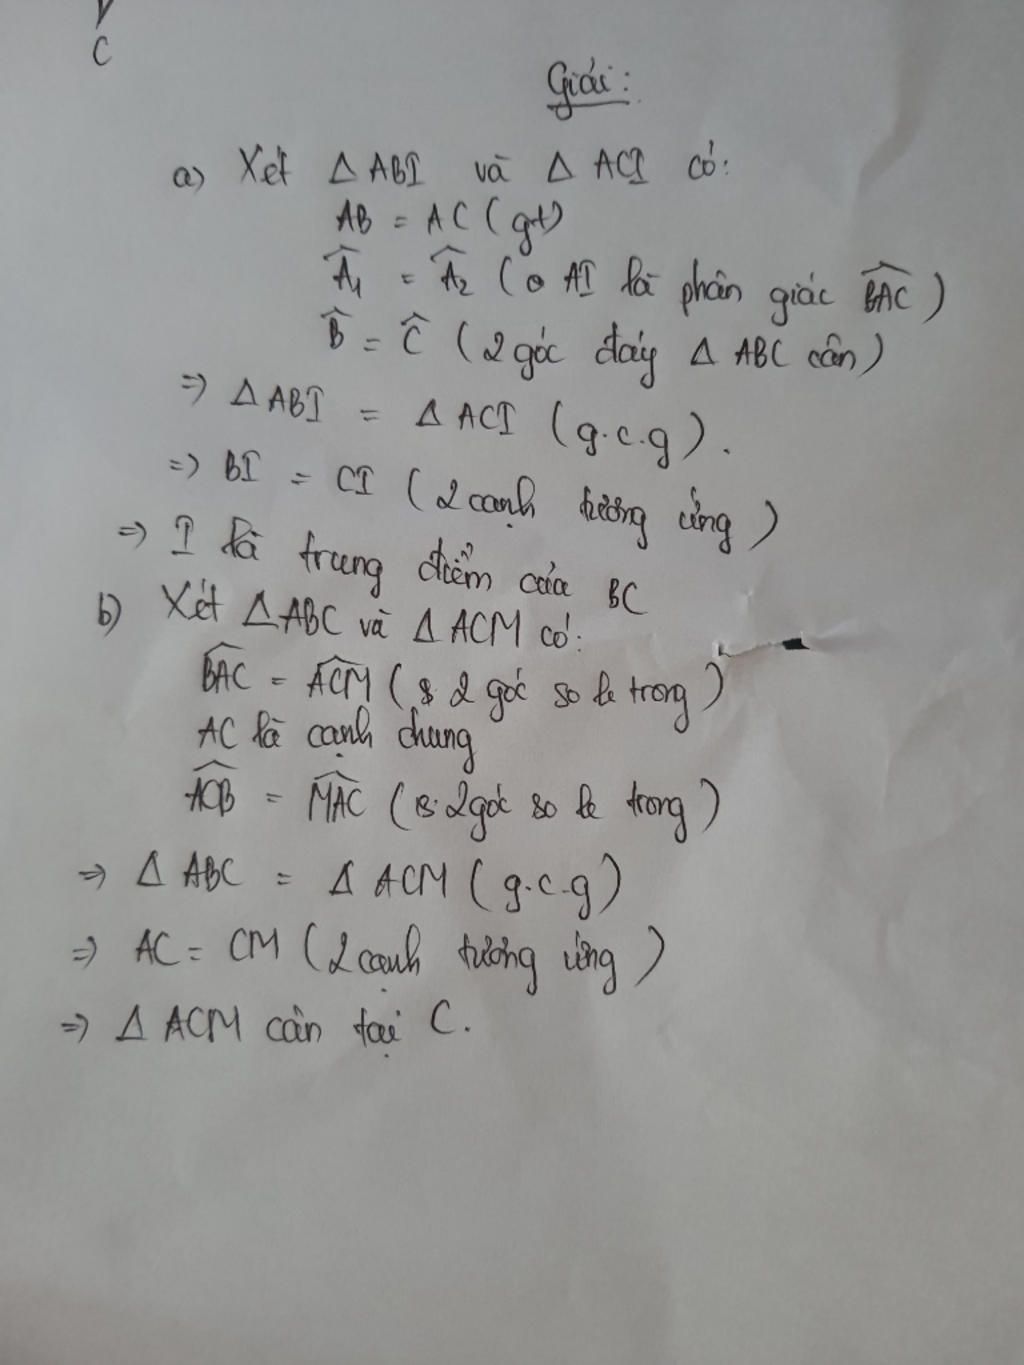 C
Giải:
a) Xét Δ ABI và Δ ACI có:
AB = AC (gt)
Â₁ = Â₂ (AI là phân giác \widehat{BAC})
B̂ = Ĉ (2 góc đáy Δ ABC cân)
=> Δ ABI = Δ ACI (g.c.g).
=> BI = CI (2 cạnh tương ứng)
=> I là trung điểm của BC
b) Xét Δ ABC và Δ ACM có:
\widehat{BAC} = \widehat{ACM} (2 góc so le trong)
AC là cạnh chung
\widehat{ACB} = \widehat{MAC} (2 góc so le trong)
=> Δ ABC = Δ ACM (g.c.g)
=> AC = CM (2 cạnh tương ứng)
=> Δ ACM cân tại C.